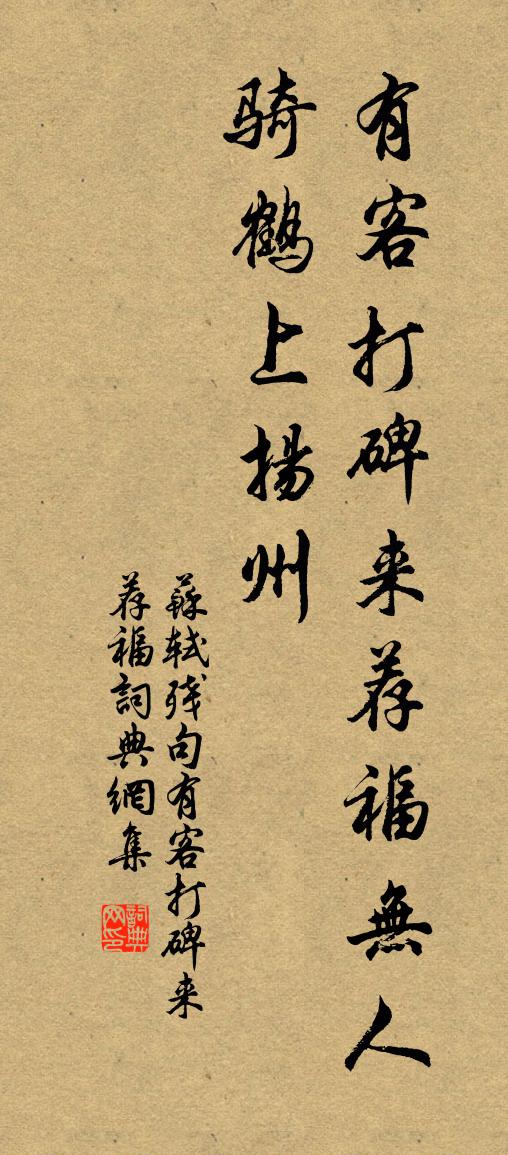 有客打碑来荐福無人
骑鹤上揚州
蘇軾残句有客打碑来
荐福詞典網集
詞典网印